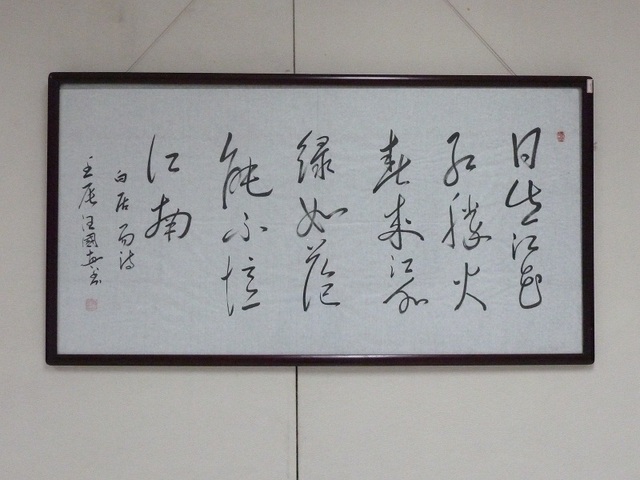 日出江花
红胜火
春来江水
绿如蓝
能不忆
江南
白居易诗
壬辰汪国真书